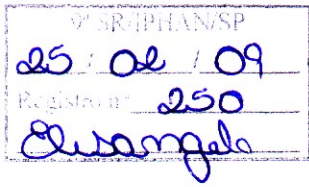 9ª SR/IPHAN/SP
25 / 02 / 09
Registro nº 250
Elisangela